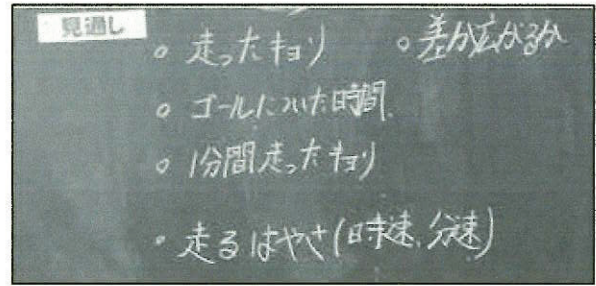 見通し
。走ったキョリ
。差が広がるか
。ゴールについた時間.
。1分間走ったキョリ
・走るはやさ(時速、分速)